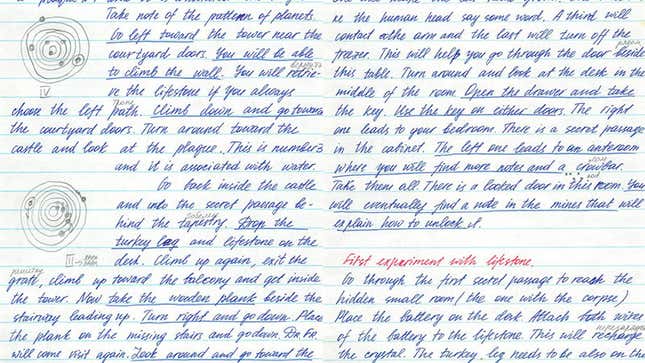 Take note of the pattern of planets.
Go left toward the tower near the
courtyard doors. You will be able
to climb the wall. You will retrie-
ve the lifestone if you always
choose the left path. Climb down and go towards
the courtyard doors. Turn around toward the
castle and look at the plaque. This is number 3
and it is associated with water.
Go back inside the castle
and into the secret passage be-
hind the tapestry. Drop the
turkey leg and lifestone on the
desk. Climb up again, exit the
grate, climb up toward the balcony and get inside
the tower. Now take the wooden plank beside the
stairway leading up. Turn right and go down. Place
the plank on the missing stairs and go down. Dr. Fr.
will come visit again. Look around and go toward the
IV
III
re the human head say some word. A third will
contact the arm and the last will turn off the
freezer. This will help you go through the door beside
this table. Turn around and look at the desk in the
middle of the room. Open the drawer and take
the key. Use the key on either doors. The right
one leads to your bedroom. There is a secret passage
in the cabinet. The left one leads to an anteroom
where you will find more notes and a crowbar.
Take them all. There is a locked door in this room. You
will eventually find a note in the mines that will
explain how to unlock it.
First experiment with lifestone.
Go through the first secret passage to reach the
hidden small room (the one with the corpse)
Place the battery on the desk. Attach both wires
of the battery to the lifestone. This will recharge
the crystal. The turkey leg needs to be also on the